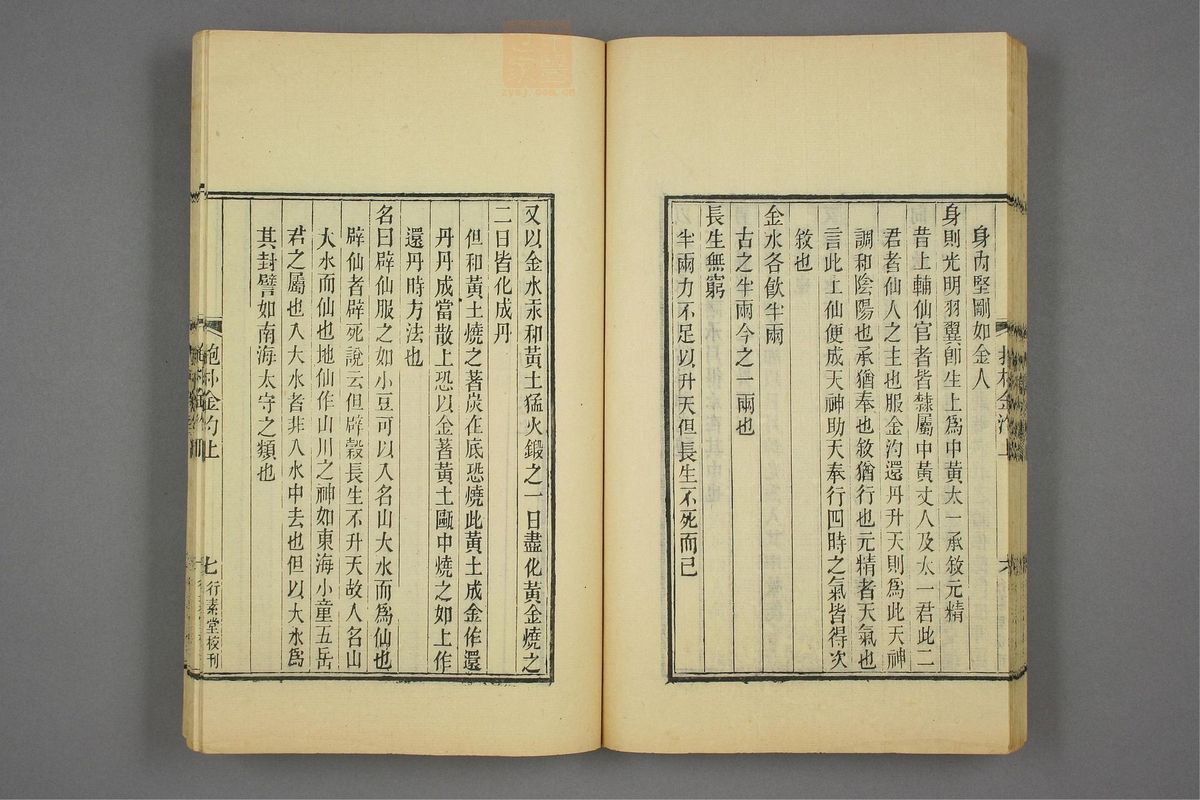 身內堅剛如金人
身則光明羽翼卽生上爲中黃太一承敘元精
昔上輔仙官者皆隸屬中黃丈人及太一君此二
君者仙人之主也服金汋還丹升天則爲此天神
調和陰陽也承猶奉也敘猶行也元精者天氣也
言此上仙便成天神助天奉行四時之氣皆得次
敘也
金水各飮半兩
古之半兩今之一兩也
長生無窮
半兩力不足以升天但長生不死而已
又以金水汞和黃土猛火鍛之一日盡化黃金燒之
二日皆化成丹
但和黃土燒之著炭在底恐燒此黃土成金作還
丹丹成當散上恐以金著黃土甌中燒之如上作
還丹時方法也
名曰辟仙服之如小豆可以入名山大水而爲仙也
辟仙者辟死說云但辟穀長生不升天故入名山
大水而仙也地仙作山川之神如東海小童五岳
君之屬也入大水者非入水中去也但以大水爲
其封譬如南海太守之類也
抱朴金汋上
七
行素堂校刊
zysj.com.cn